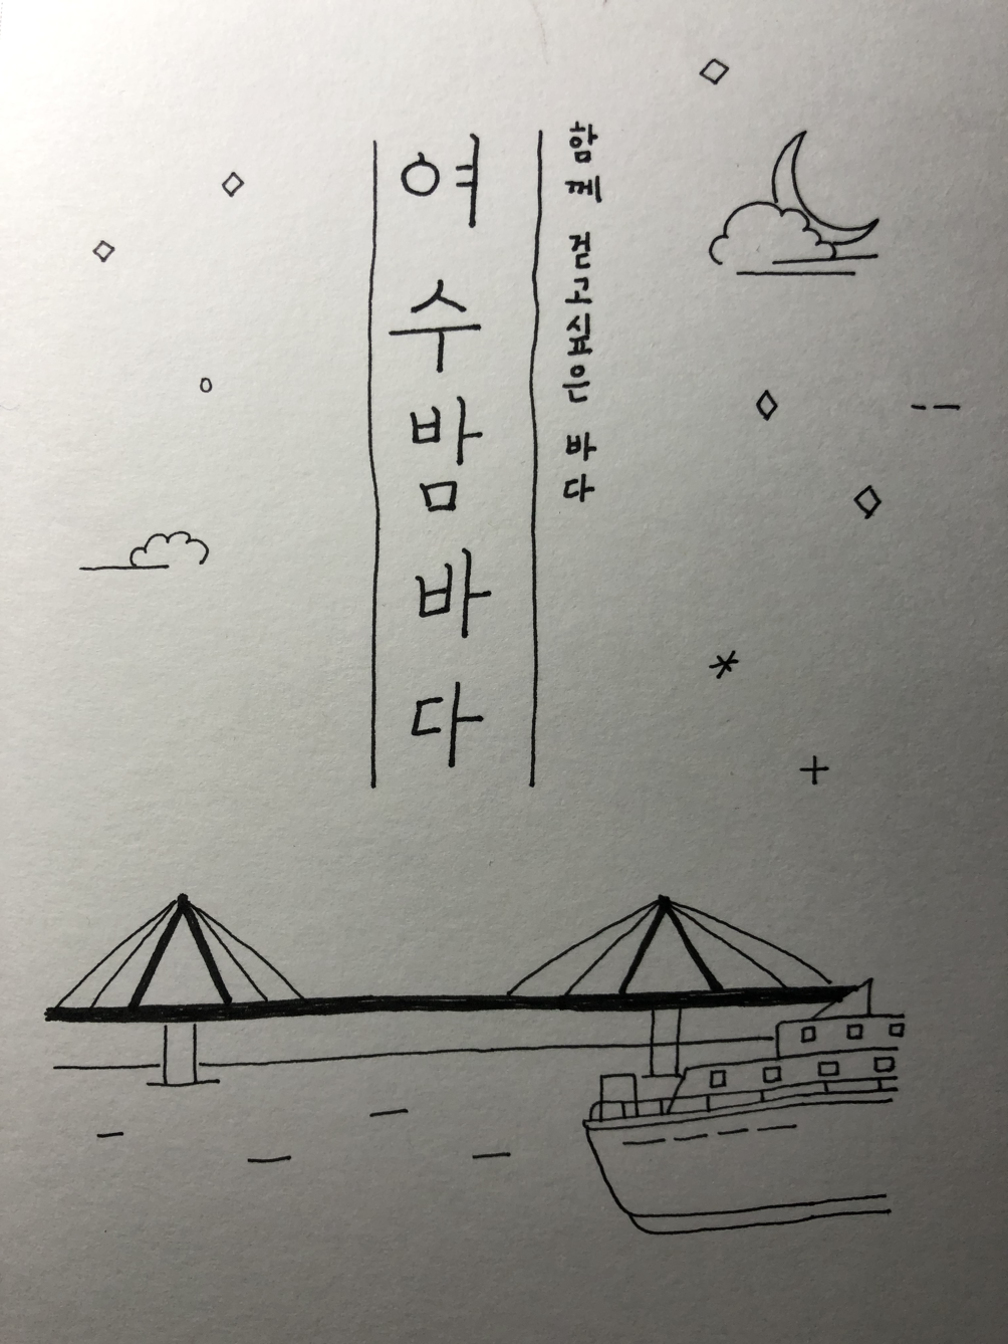 여수밤바다
함께 걷고싶은 바다